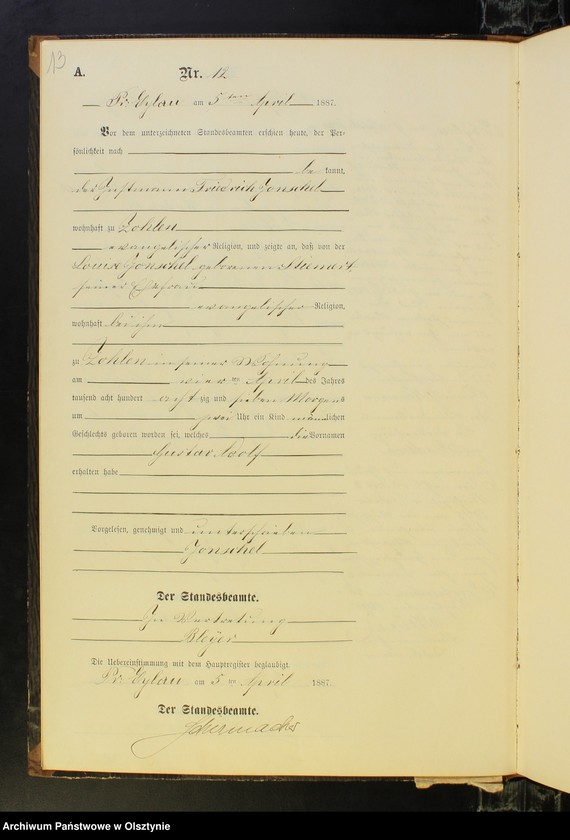 13
A. Nr. 12
Pr. Eylau am 5ten April 1887.
Vor dem unterzeichneten Standesbeamten erschien heute, der Per-
sönlichkeit nach
be kannt,
der Instmann Friedrich Jonschel
wohnhaft zu Zohlen
evangelischer Religion, und zeigte an, daß von der
Louise Jonschel geborenen
seiner Ehefrau
evangelischer Religion,
wohnhaft bei ihm
zu Zohlen in seiner Wohnung
am vier ten April des Jahres
tausend acht hundert acht zig und sieben Morgens
um zwei Uhr ein Kind männlichen
Geschlechts geboren worden sei, welches die Vornamen
Gustav Adolf
erhalten habe
Vorgelesen, genehmigt und unterschrieben
Jonschel
Der Standesbeamte.
In Vertretung
Bleyer
Die Uebereinstimmung mit dem Hauptregister beglaubigt.
Pr. Eylau am 5 ten April 1887.
Der Standesbeamte.
Archiwum Państwowe w Olsztynie